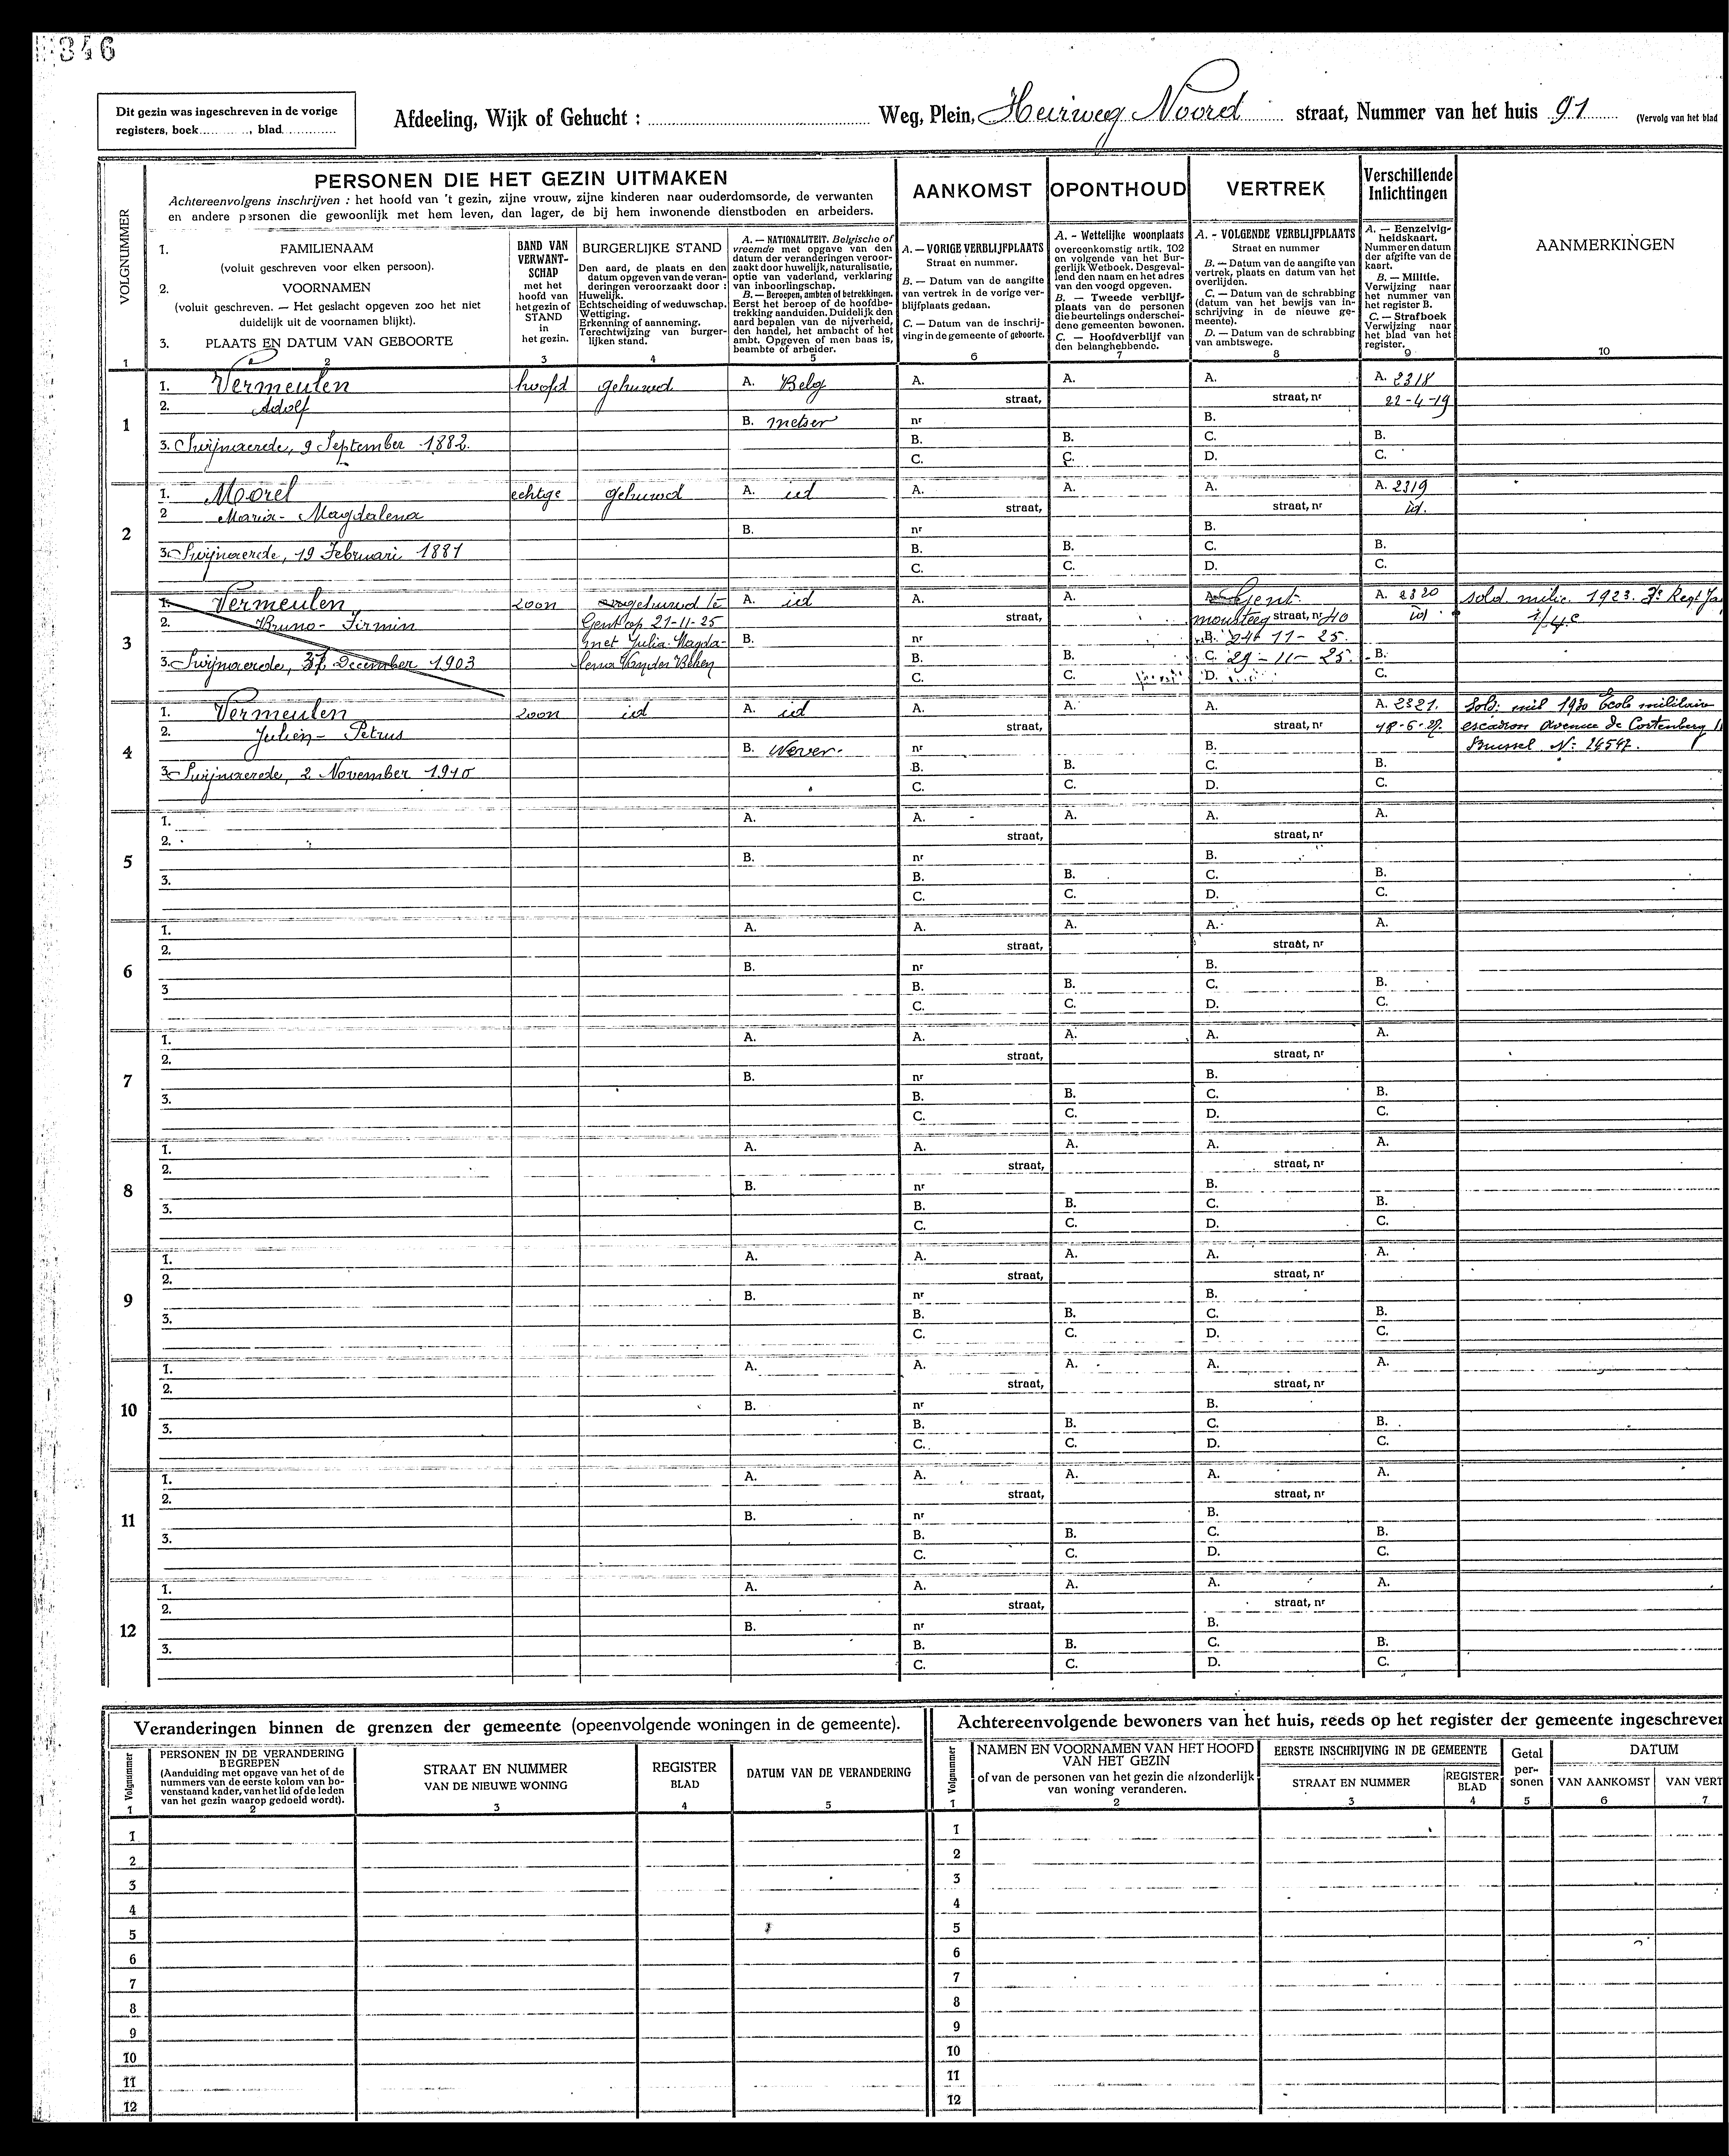 346
Dit gezin was ingeschreven in de vorige
registers, boek, blad
Afdeeling, Wijk of Gehucht : Weg, Plein, Heirweg Noord straat, Nummer van het huis 91 (Vervolg van het blad
PERSONEN DIE HET GEZIN UITMAKEN
Achtereenvolgens inschrijven : het hoofd van 't gezin, zijne vrouw, zijne kinderen naar ouderdomsorde, de verwanten
en andere personen die gewoonlijk met hem leven, dan lager, de bij hem inwonende dienstboden en arbeiders.
AANKOMST
OPONTHOUD
VERTREK
Verschillende
Inlichtingen
AANMERKINGEN
VOLGNUMMER
1. FAMILIENAAM
(voluit geschreven voor elken persoon).
2. VOORNAMEN
(voluit geschreven. — Het geslacht opgeven zoo het niet
duidelijk uit de voornamen blijkt).
3. PLAATS EN DATUM VAN GEBOORTE
BAND VAN
VERWANT-
SCHAP
met het
hoofd van
het gezin of
STAND
in
het gezin.
BURGERLIJKE STAND
Den aard, de plaats en den
datum opgeven van de veran-
deringen veroorzaakt door :
Huwelijk.
Echtscheiding of weduwschap.
Wettiging.
Erkenning of aanneming.
Terechtwijzing van burger-
lijken stand.
A. — NATIONALITEIT. Belgische of
vreemde met opgave van den
datum der veranderingen veroor-
zaakt door huwelijk, naturalisatie,
optie van vaderland, verklaring
van inboorlingschap.
B. — Beroepen, ambten of betrekkingen.
Eerst het beroep of de hoofdbe-
trekking aanduiden. Duidelijk den
aard bepalen van de nijverheid,
den handel, het ambacht of het
ambt. Opgeven of men baas is,
beambte of arbeider.
A. — VORIGE VERBLIJFPLAATS
Straat en nummer.
B. — Datum van de aangifte
van vertrek in de vorige ver-
blijfplaats gedaan.
C. — Datum van de inschrij-
ving in de gemeente of geboorte.
A. - Wettelijke woonplaats
overeenkomstig artik. 102
en volgende van het Bur-
gerlijk Wetboek. Desgeval-
lend den naam en het adres
van den voogd opgeven.
B. — Tweede verblijf-
plaats van de personen
die beurtelings onderschei-
dene gemeenten bewonen.
C. — Hoofdverblijf van
den belanghebbende.
A. - VOLGENDE VERBLIJFPLAATS
Straat en nummer
B. — Datum van de aangifte van
vertrek, plaats en datum van het
overlijden.
C. — Datum van de schrabbing
(datum van het bewijs van in-
schrijving in de nieuwe ge-
meente).
D. — Datum van de schrabbing
van ambtswege.
A. — Eenzelvig-
heidskaart.
Nummer en datum
der afgifte van de
kaart.
B. — Militie.
Verwijzing naar
het nummer van
het register B.
C. — Strafboek
Verwijzing naar
het blad van het
register.
1 2 3 4 5 6 7 8 9 10
1
1. Vermeulen hoofd gehuwd A. Belg A. A. A. A. 2318
2. Adolf straat, straat, nr 22-4-19
B. metser nr B.
3. Swijnaerde, 9 September 1882. B. B. C. B.
C. C. D. C.
2
1. Morel echtge gehuwd A. id A. A. A. A. 2319
2 Maria- Magdalena straat, straat, nr id.
B. nr B.
3. Swijnaerde, 19 Februari 1881 B. B. C. B.
C. C. D. C.
3
1. Vermeulen zoon gehuwd te A. id A. A. A. Gent. A. 2320 sold. milic. 1923.
2. Bruno- Firmin Gent op 21-11-25 straat, straat, nr 40 id
met Julia-Magda- B. nr B. 11-25.
3. Swijnaerde, December 1903 lena B. B. C. 29-11-25. B.
C. C. D. C.
4
1. Vermeulen zoon id A. id A. A. A. A. 2321. Sold. mil 1930 Ecole militaire
2. Julien- Petrus straat, straat, nr escadron Avenue de Cortenberg
B. Wever. nr B. Brussel N: 24547.
3. Swijnaerde, 2 November 1910 B. B. C. B.
C. C. D. C.
5
1. A. A. A. A. A.
2. straat, straat, nr
B. nr B.
3. B. B. C. B.
C. C. D. C.
6
1. A. A. A. A. A.
2. straat, straat, nr
B. nr B.
3 B. B. C. B.
C. C. D. C.
7
1. A. A. A. A. A.
2. straat, straat, nr
B. nr B.
3. B. B. C. B.
C. C. D. C.
8
1. A. A. A. A. A.
2. straat, straat, nr
B. nr B.
3. B. B. C. B.
C. C. D. C.
9
1. A. A. A. A. A.
2. straat, straat, nr
B. nr B.
3. B. B. C. B.
C. C. D. C.
10
1. A. A. A. A. A.
2. straat, straat, nr
B. nr B.
3. B. B. C. B.
C. C. D. C.
11
1. A. A. A. A. A.
2. straat, straat, nr
B. nr B.
3. B. B. C. B.
C. C. D. C.
12
1. A. A. A. A. A.
2. straat, straat, nr
B. nr B.
3. B. B. C. B.
C. C. D. C.
Veranderingen binnen de grenzen der gemeente (opeenvolgende woningen in de gemeente).
Volgnummer
PERSONEN IN DE VERANDERING
BEGREPEN
(Aanduiding met opgave van het of de
nummers van de eerste kolom van bo-
venstaand kader, van het lid of de leden
van het gezin waarop gedoeld wordt).
STRAAT EN NUMMER
VAN DE NIEUWE WONING
REGISTER
BLAD
DATUM VAN DE VERANDERING
1 2 3 4 5
1
2
3
4
5
6
7
8
9
10
11
12
Achtereenvolgende bewoners van het huis, reeds op het register der gemeente ingeschreven
Volgnummer
NAMEN EN VOORNAMEN VAN HET HOOFD
VAN HET GEZIN
of van de personen van het gezin die afzonderlijk
van woning veranderen.
EERSTE INSCHRIJVING IN DE GEMEENTE
STRAAT EN NUMMER
REGISTER
BLAD
Getal
per-
sonen
DATUM
VAN AANKOMST
VAN VERT
1 2 3 4 5 6 7
1
2
3
4
5
6
7
8
9
10
11
12